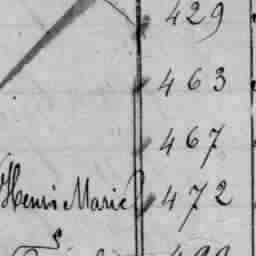 429
463
467
Henri Marie 472